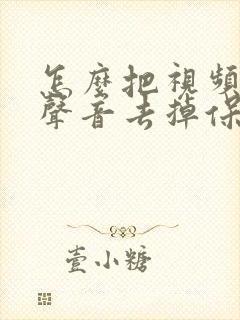 怎麼把視頻
聲音去掉保
壹小糖